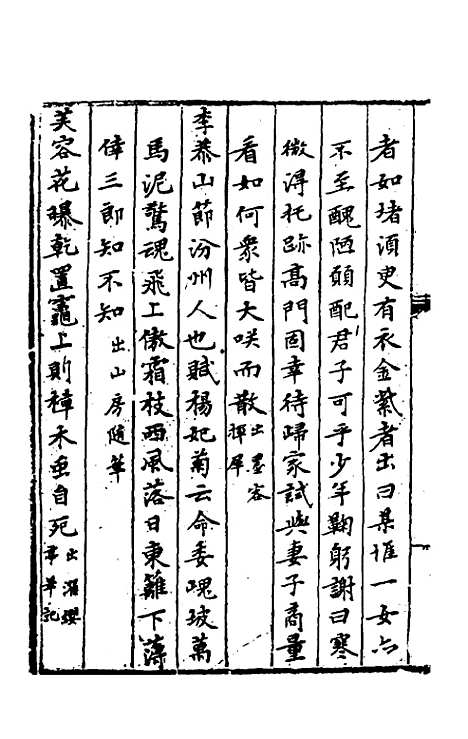 者如堵須臾有衣金紫者出曰某惟一女亦
不至醜陋願配君子可乎少年鞠躬謝曰寒
微得托跡高門固幸待歸家試與妻子商量
看如何衆皆大咲而散出墨客揮犀
李泰山節汾州人也賦楊妃菊云命委塊坡萬
馬泥驚魂飛上傲霜枝西風落日東籬下薄
倖三郎知不知出山房隨筆
芙容花曝乾置竈上則樟木䖝自死出澠